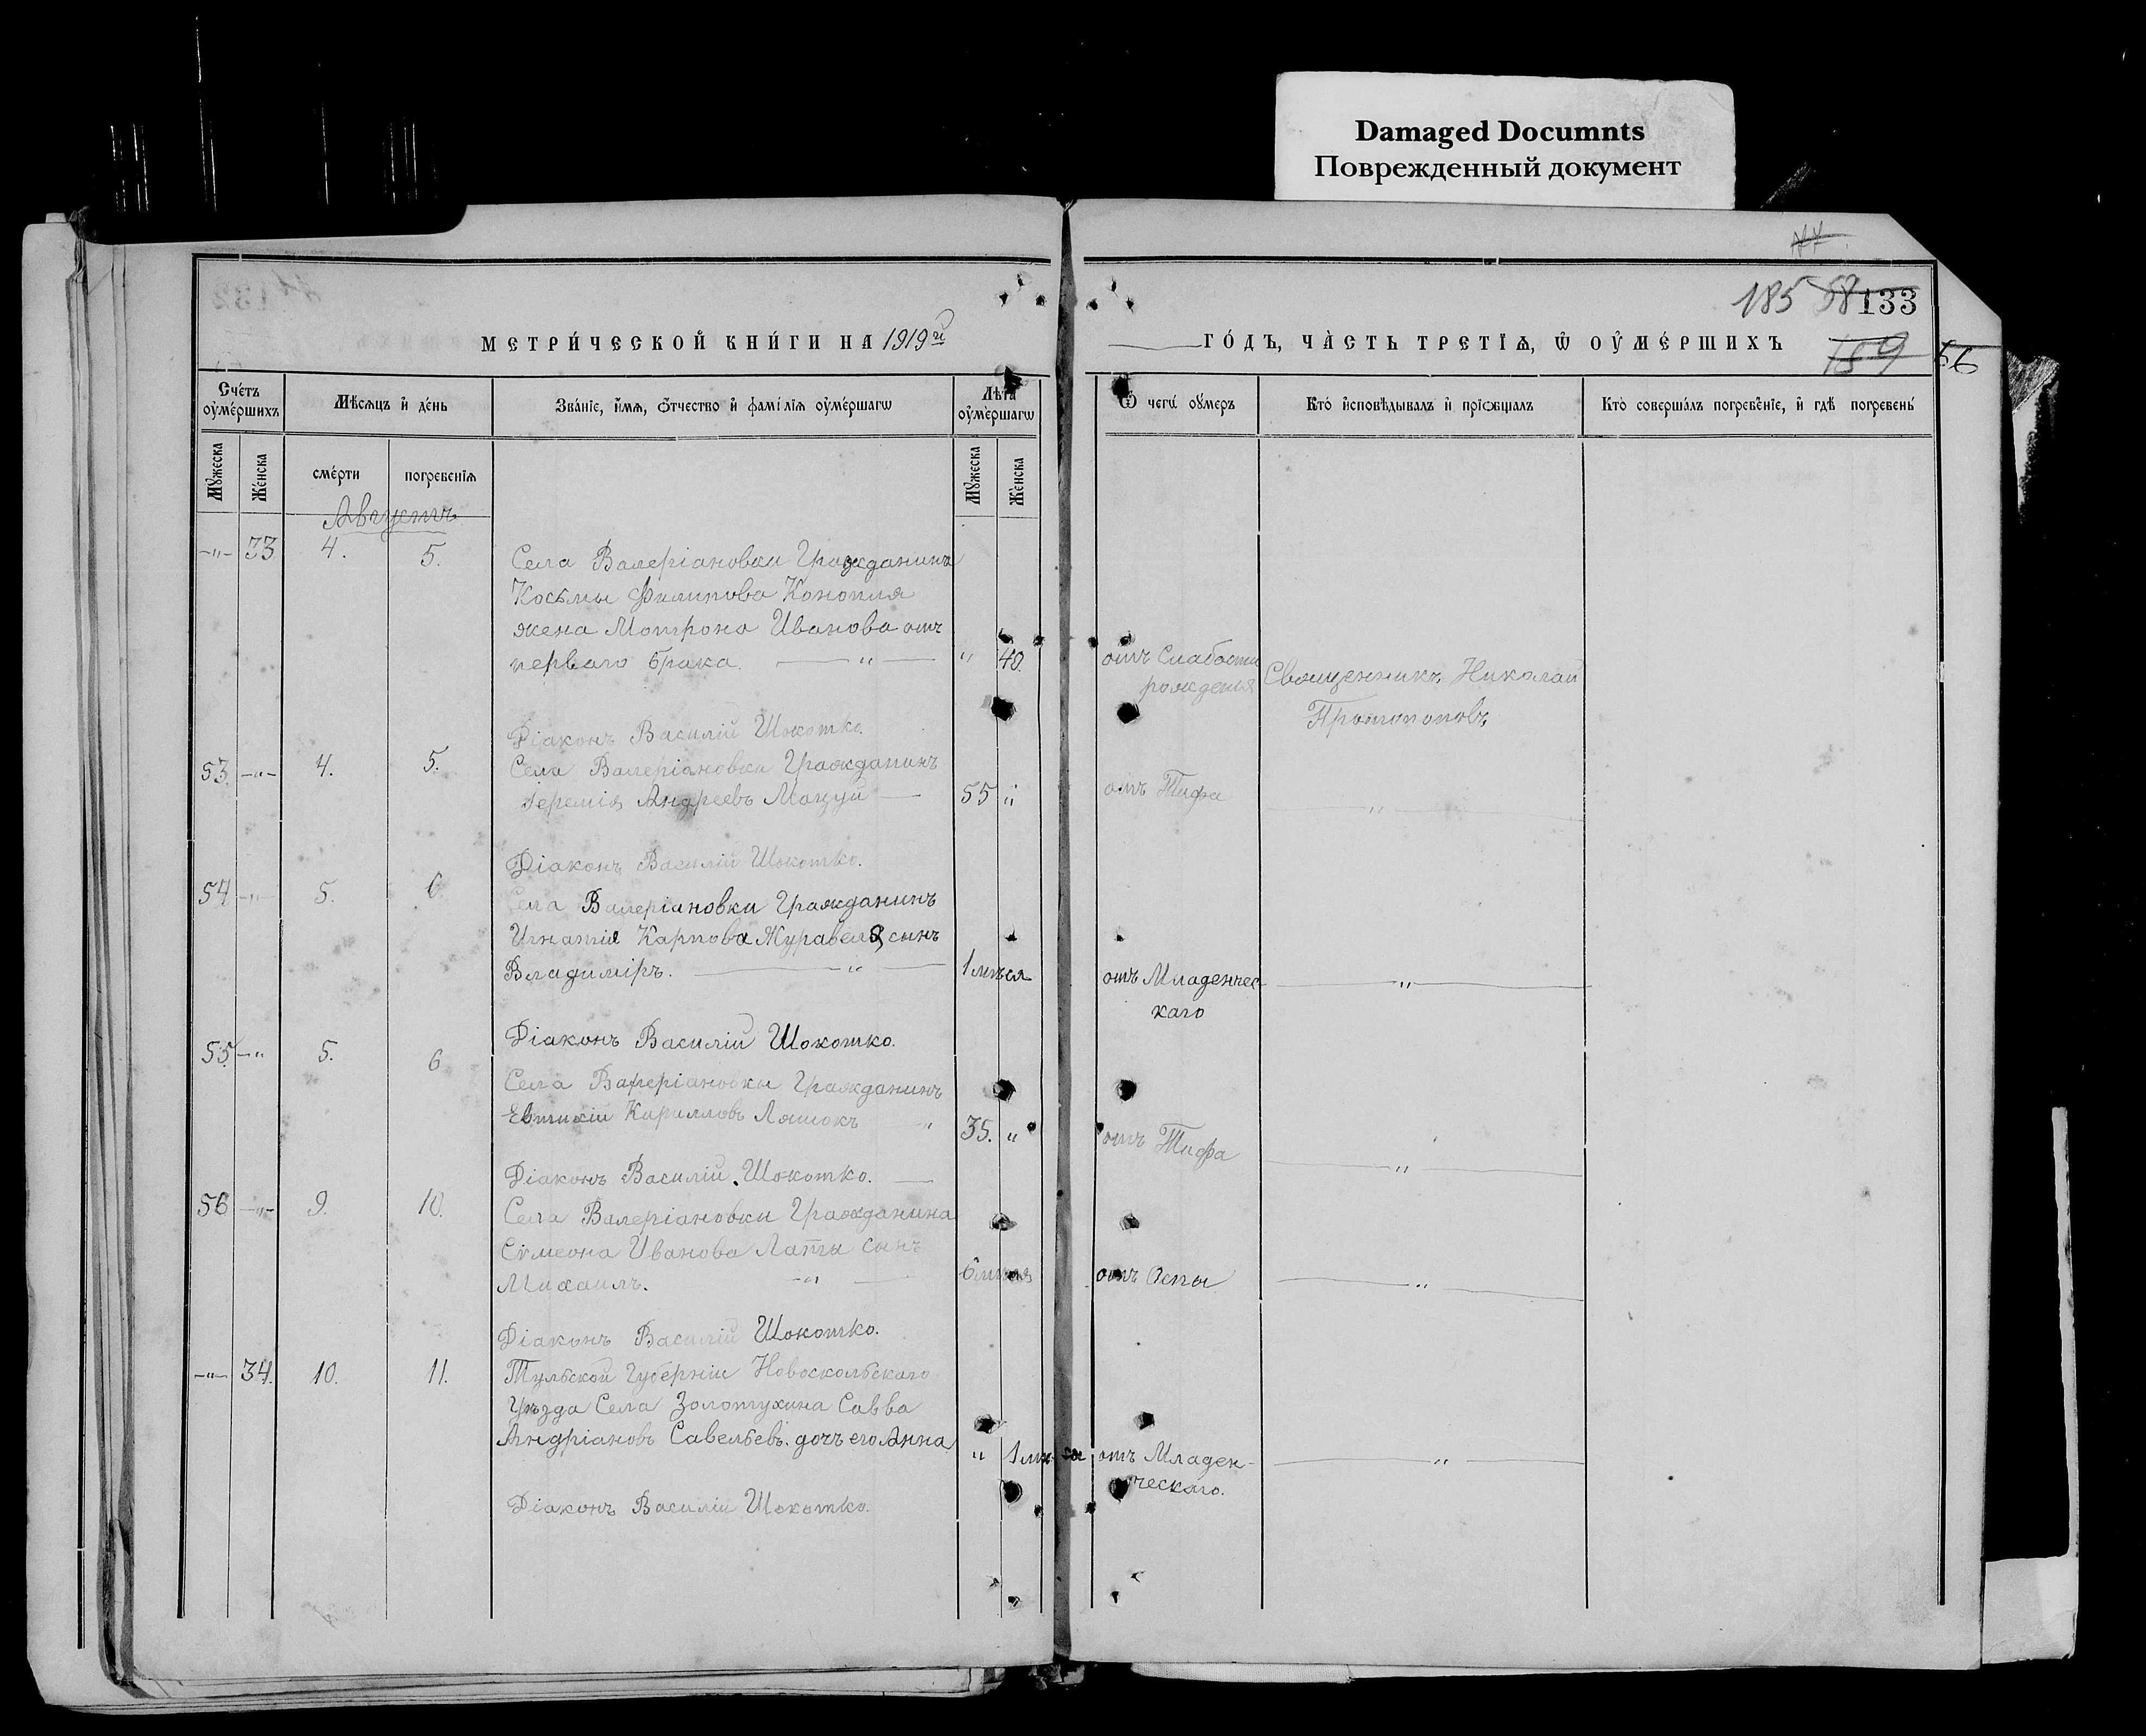 Damaged Documnts
Поврежденный документ
185 58 133
МЕТРИ́ЧЕСКОЙ КНИ́ГИ НА 1919й
ГО́ДЪ, ЧА̀СТЬ ТРЕТІѦ, Ѿ ОУ҆МЕ́РШИХЪ
189 66
Сче́тъ оу҆ме́ршихъ
Мѣсѧцъ и҆ де́нь
Зва́нїе, и҆́мѧ, ѻ҆́тчество и҆ фамі́лїѧ оу҆ме́ршагѡ
Лѣта оу҆ме́ршагѡ
Ѿ чегѡ̀ оу҆́меръ
Кто̀ и҆сповѣ́дывалъ и҆ прїѻбща́лъ
Кто̀ соверша́лъ погребе́нїе, и҆ гдѣ̀ погребены̀
Мꙋжеска
Же́нска
сме́рти
погребенїѧ
Мꙋжеска
Же́нска
Августъ
-"- 33 4. 5. Села Валеріановки Гражданина
Косьмы Филипова Конопля
жена Мотрона Иванова отъ
перваго брака. — " — " 40. отъ Слабости
рожденія Священникъ Николай
Протопоповъ
Діаконъ Василій Шокотко.
53 -"- 4. 5. Села Валеріановки Гражданинъ
Іеремія Андреевъ Мацуй — 55 " отъ Тифа "
Діаконъ Василій Шокотко.
54 -"- 5. 6. Села Валеріановки Гражданинъ
Игнатія Карпова Журавель сынъ
Владиміръ. — " — 1 мѣся отъ Младенчес- — " —
каго
Діаконъ Василій Шокотко.
55 -" 5. 6 Села Валеріановки Гражданинъ
Евтихій Кирилловъ Ляшокъ " 35. " отъ Тифа — " —
Діаконъ Василій Шокотко. —
56 -"- 9. 10. Села Валеріановки Гражданина
Сѵмеона Иванова Лапы сынъ
Михаилъ. -"- — 6 мѣся отъ Оспы — " —
Діаконъ Василій Шокотко.
-"- 34. 10. 11. Тульской Губерніи Новоскольскаго
Уѣзда Села Золотухина Савва
Андріановъ Савельевъ. дочь его Анна " 1 мѣ- ся отъ Младен- — " —
ческаго.
Діаконъ Василій Шокотко.